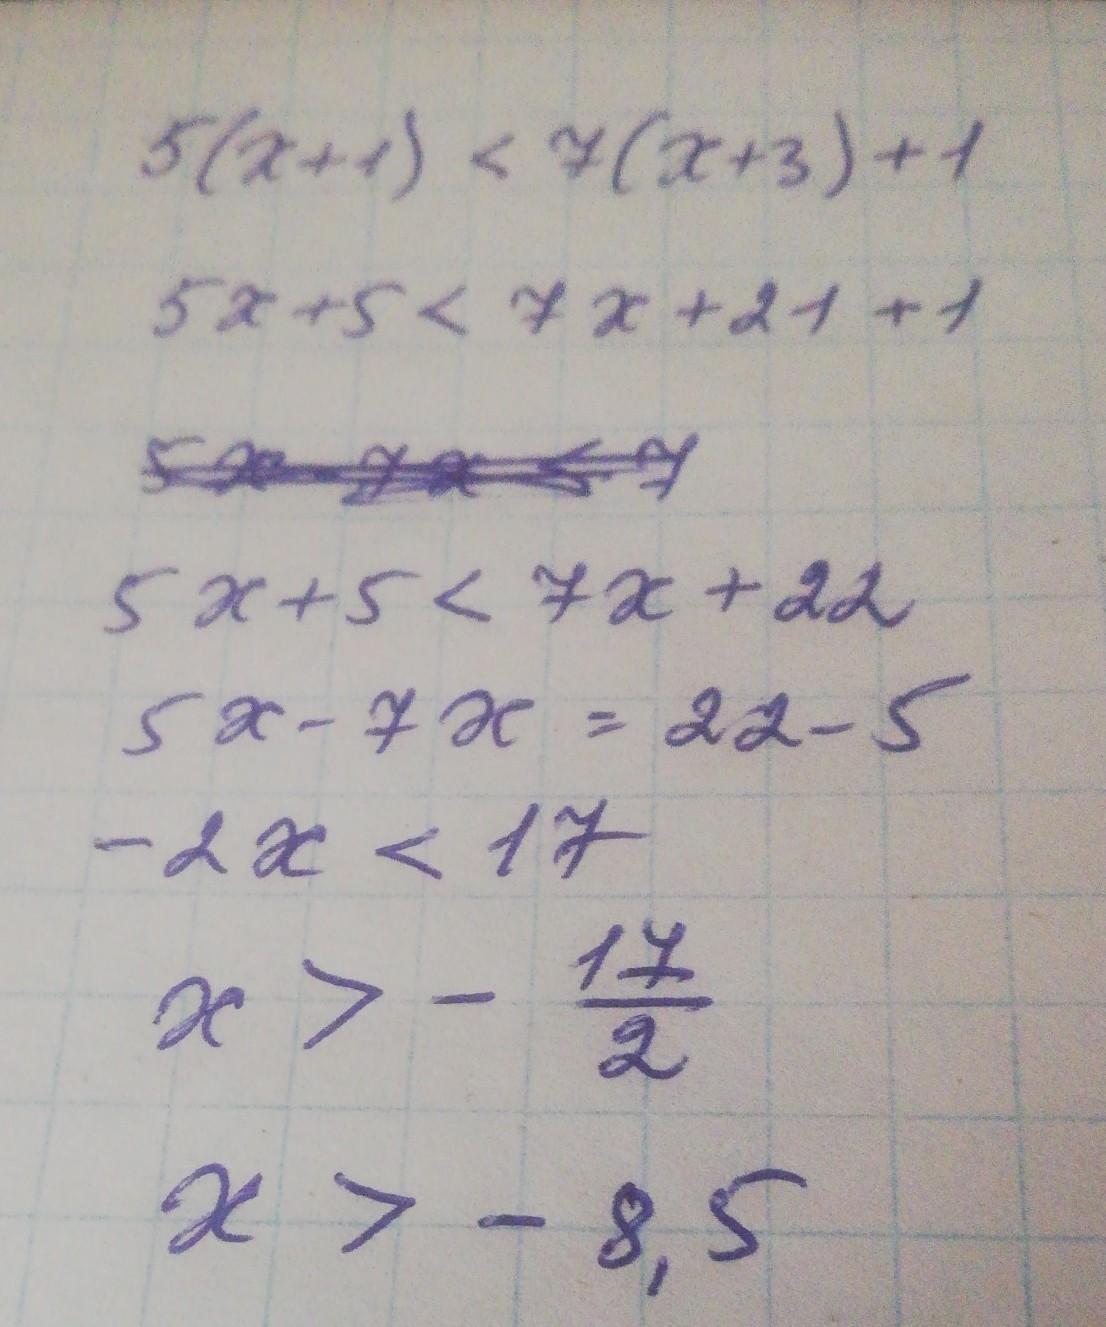 5(x+1) < 7(x+3)+1
5x+5 < 7x+21+1
5x-7x < 7
5x+5 < 7x+22
5x-7x = 22-5
-2x < 17
x > - 17/2
x > - 8,5